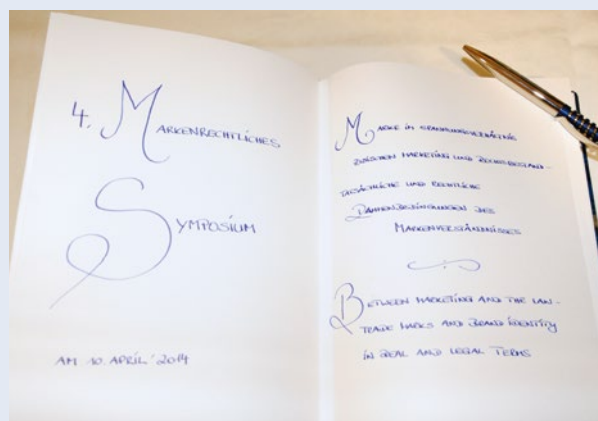 4. MARKENRECHTLICHES
SYMPOSIUM
AM 10. APRIL '2014
MARKE IM SPANNUNGSVERHÄLTNIS
ZWISCHEN MARKETING UND RECHTSBESTAND -
TATSÄCHLICHE UND RECHTLICHE
RAHMENBEDINGUNGEN DES
MARKENVERSTÄNDNISSES
BETWEEN MARKETING AND THE LAW -
TRADE MARKS AND BRAND IDENTITY
IN REAL AND LEGAL TERMS